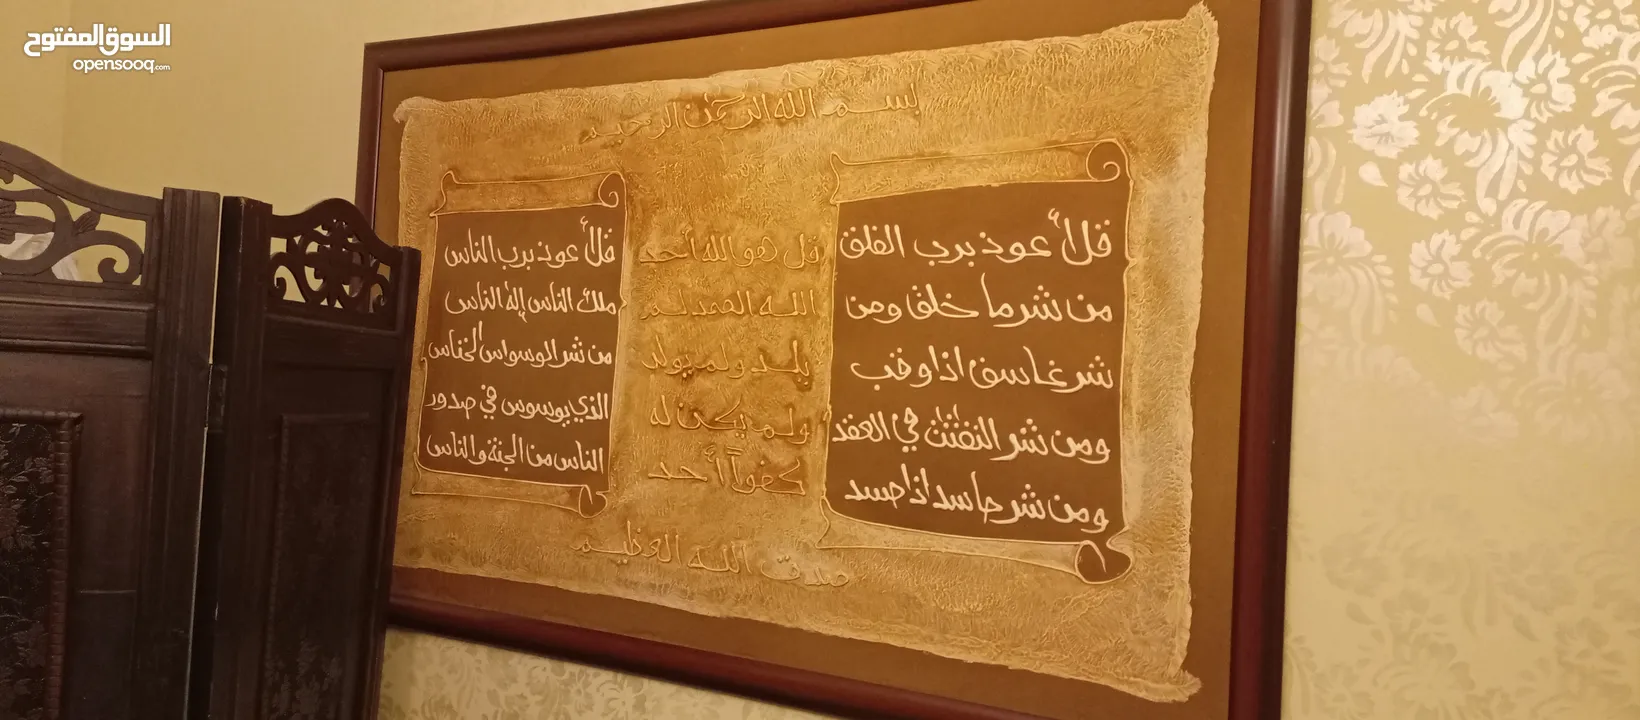 السوق المفتوح
opensooq.com
بسم الله الرحمن الرحيم
قل أعوذ برب الفلق
من شر ما خلق ومن
شر غاسق اذا وقب
ومن شر النفثت في العقد
ومن شر حاسد اذا حسد
قل هو الله أحد
الله الصمد لم
يلد ولم يولد
ولم يكن له
كفواً أحد
قل أعوذ برب الناس
ملك الناس إله الناس
من شر الوسواس الخناس
الذي يوسوس في صدور
الناس من الجنة والناس
صدق الله العظيم